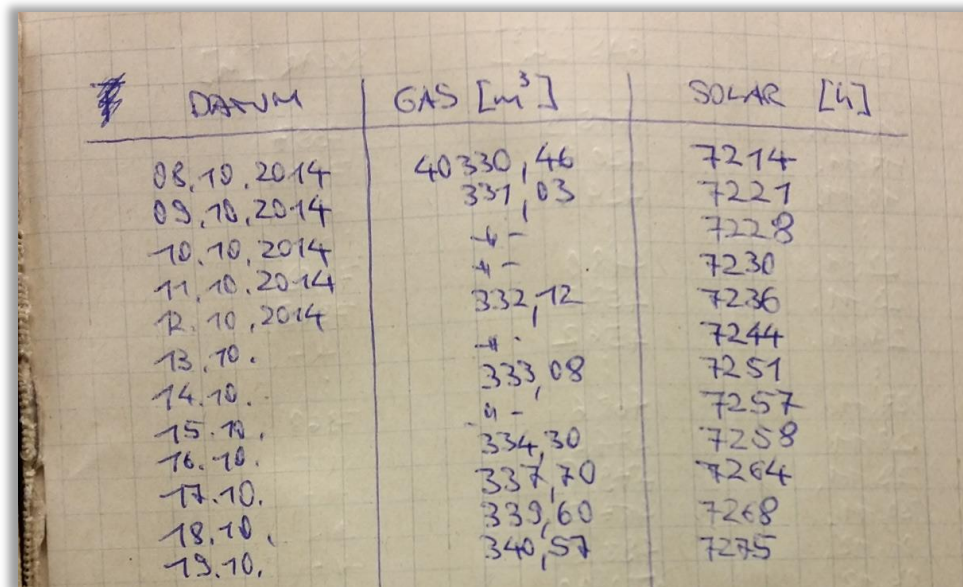 DATUM GAS [m³] SOLAR [h]
08.10.2014 40330,46 7214
09.10.2014 331,03 7221
10.10.2014 -"- 7228
11.10.2014 -"- 7230
12.10.2014 332,12 7236
13.10. -"- 7244
14.10. 333,08 7251
15.10. -"- 7257
16.10. 334,30 7258
17.10. 337,70 7264
18.10. 339,60 7268
19.10. 340,57 7275